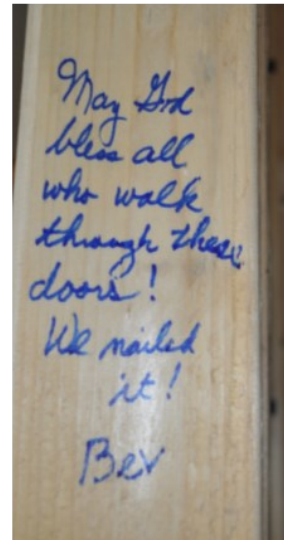 May God
bless all
who walk
through these
doors!
We nailed
it!
Bev